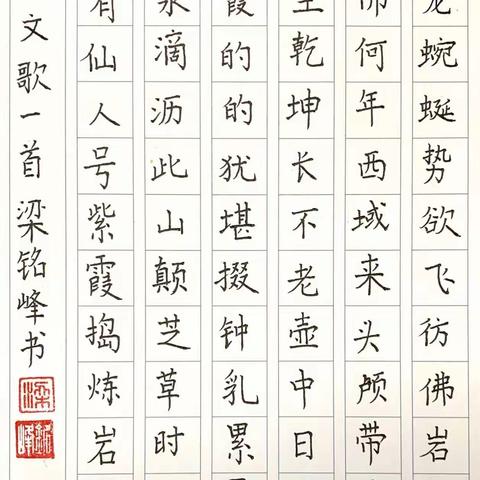 龙蜿蜒势欲飞彷佛岩
佛何年西域来头颅带
乾坤长不老壶中日
霞的的犹堪掇钟乳累
滴沥此山颠芝草时
有仙人号紫霞捣炼岩
文歌一首梁铭峰书
梁
铭峰